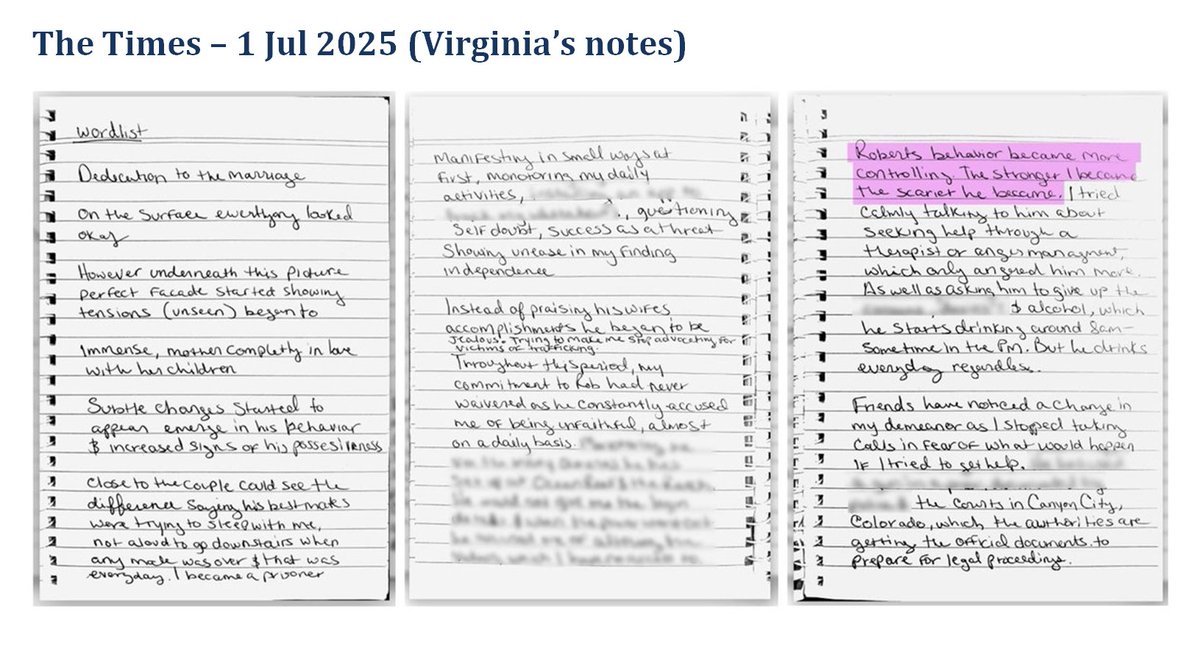 The Times – 1 Jul 2025 (Virginia’s notes)
wordlist
Dedication to the marriage
On the surface everything looked
okay
However underneath this picture
perfect facade started showing
tensions (unseen) began to
Immense, mother completly in love
with her children
Subtle changes started to
appear emerge in his behavior
& increased signs of his possesiveness
Close to the couple could see the
difference saying his best mates
were trying to sleep with me,
not aloud to go downstairs when
any male was over & that was
everyday. I became a prisoner
Manifesting in small ways at
first, monotoring my daily
activities,
., questioning
Self doubt, success as a threat
Showing unease in my finding
independence
Instead of praising his wifes
accomplishments he began to be
Jealous. Trying to make me stop advocating for
victims of trafficking.
Throughout this period, my
commitment to Rob had never
waivered as he constantly accused
me of being unfaithful, almost
on a daily basis.
Roberts behavior became more
controlling. The stronger I became
the scarier he became. I tried
calmly talking to him about
seeking help through a
therapist or anger managment,
which only angered him more.
As well as asking him to give up the
& alcohol, which
he starts drinking around 8am-
Sometime in the PM. But he drinks
everyday regardless.
Friends have noticed a change in
my demeanor as I stopped taking
calls in fear of what would happen
If I tried to get help.
the courts in Canyon City,
Colorado, which the authorities are
getting the official documents to
prepare for legal proceedings.